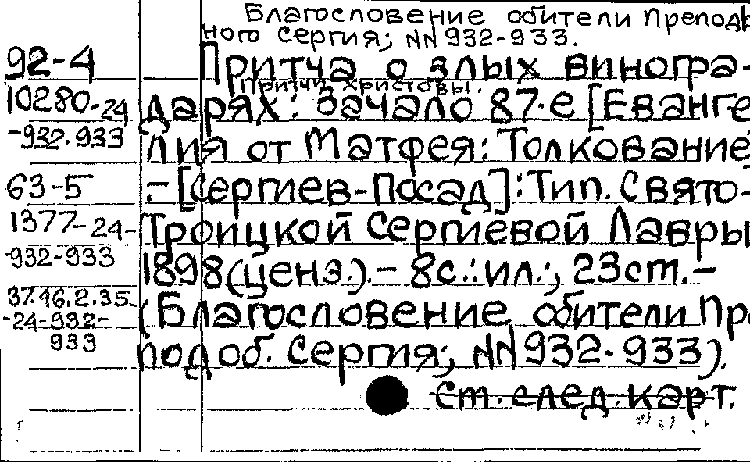 Благословение обители Преподоб
ного Сергия; NN 932-933.
92-4 Притча о злых виногра-
Притчи Христовы.
10280-24 дарях: Зачало 87-е [Еванге
-932.933 лия от Матфея: Толкование
63-5 .- [Сергиев-Посад]: Тип. Свято-
1377-24- Троицкой Сергиевой Лавры
-932-933 1898(ценз.).- 8с.:ил.; 23см.-
37.16.2.35- (Благословение обители Пре
-24-932- подоб. Сергия; NN 932-933).
933
См. след. карт.